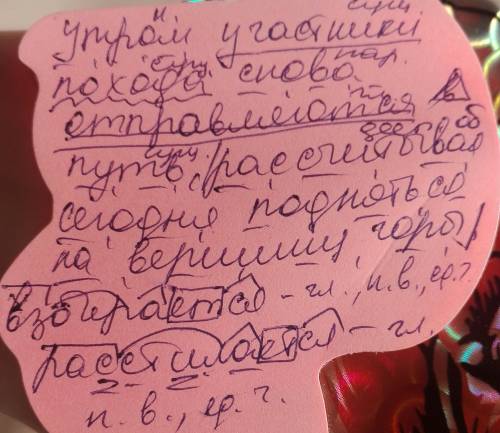 н сущ.
Утром участники
сущ. нар.
похода снова
гл.
отправляются в
сущ. дееп. об
путь, рассчитывая
сегодня подняться
на вершину горы
взбирается - гл., н.в., ед.ч.
расстилается - гл.
н.в., ед.ч.